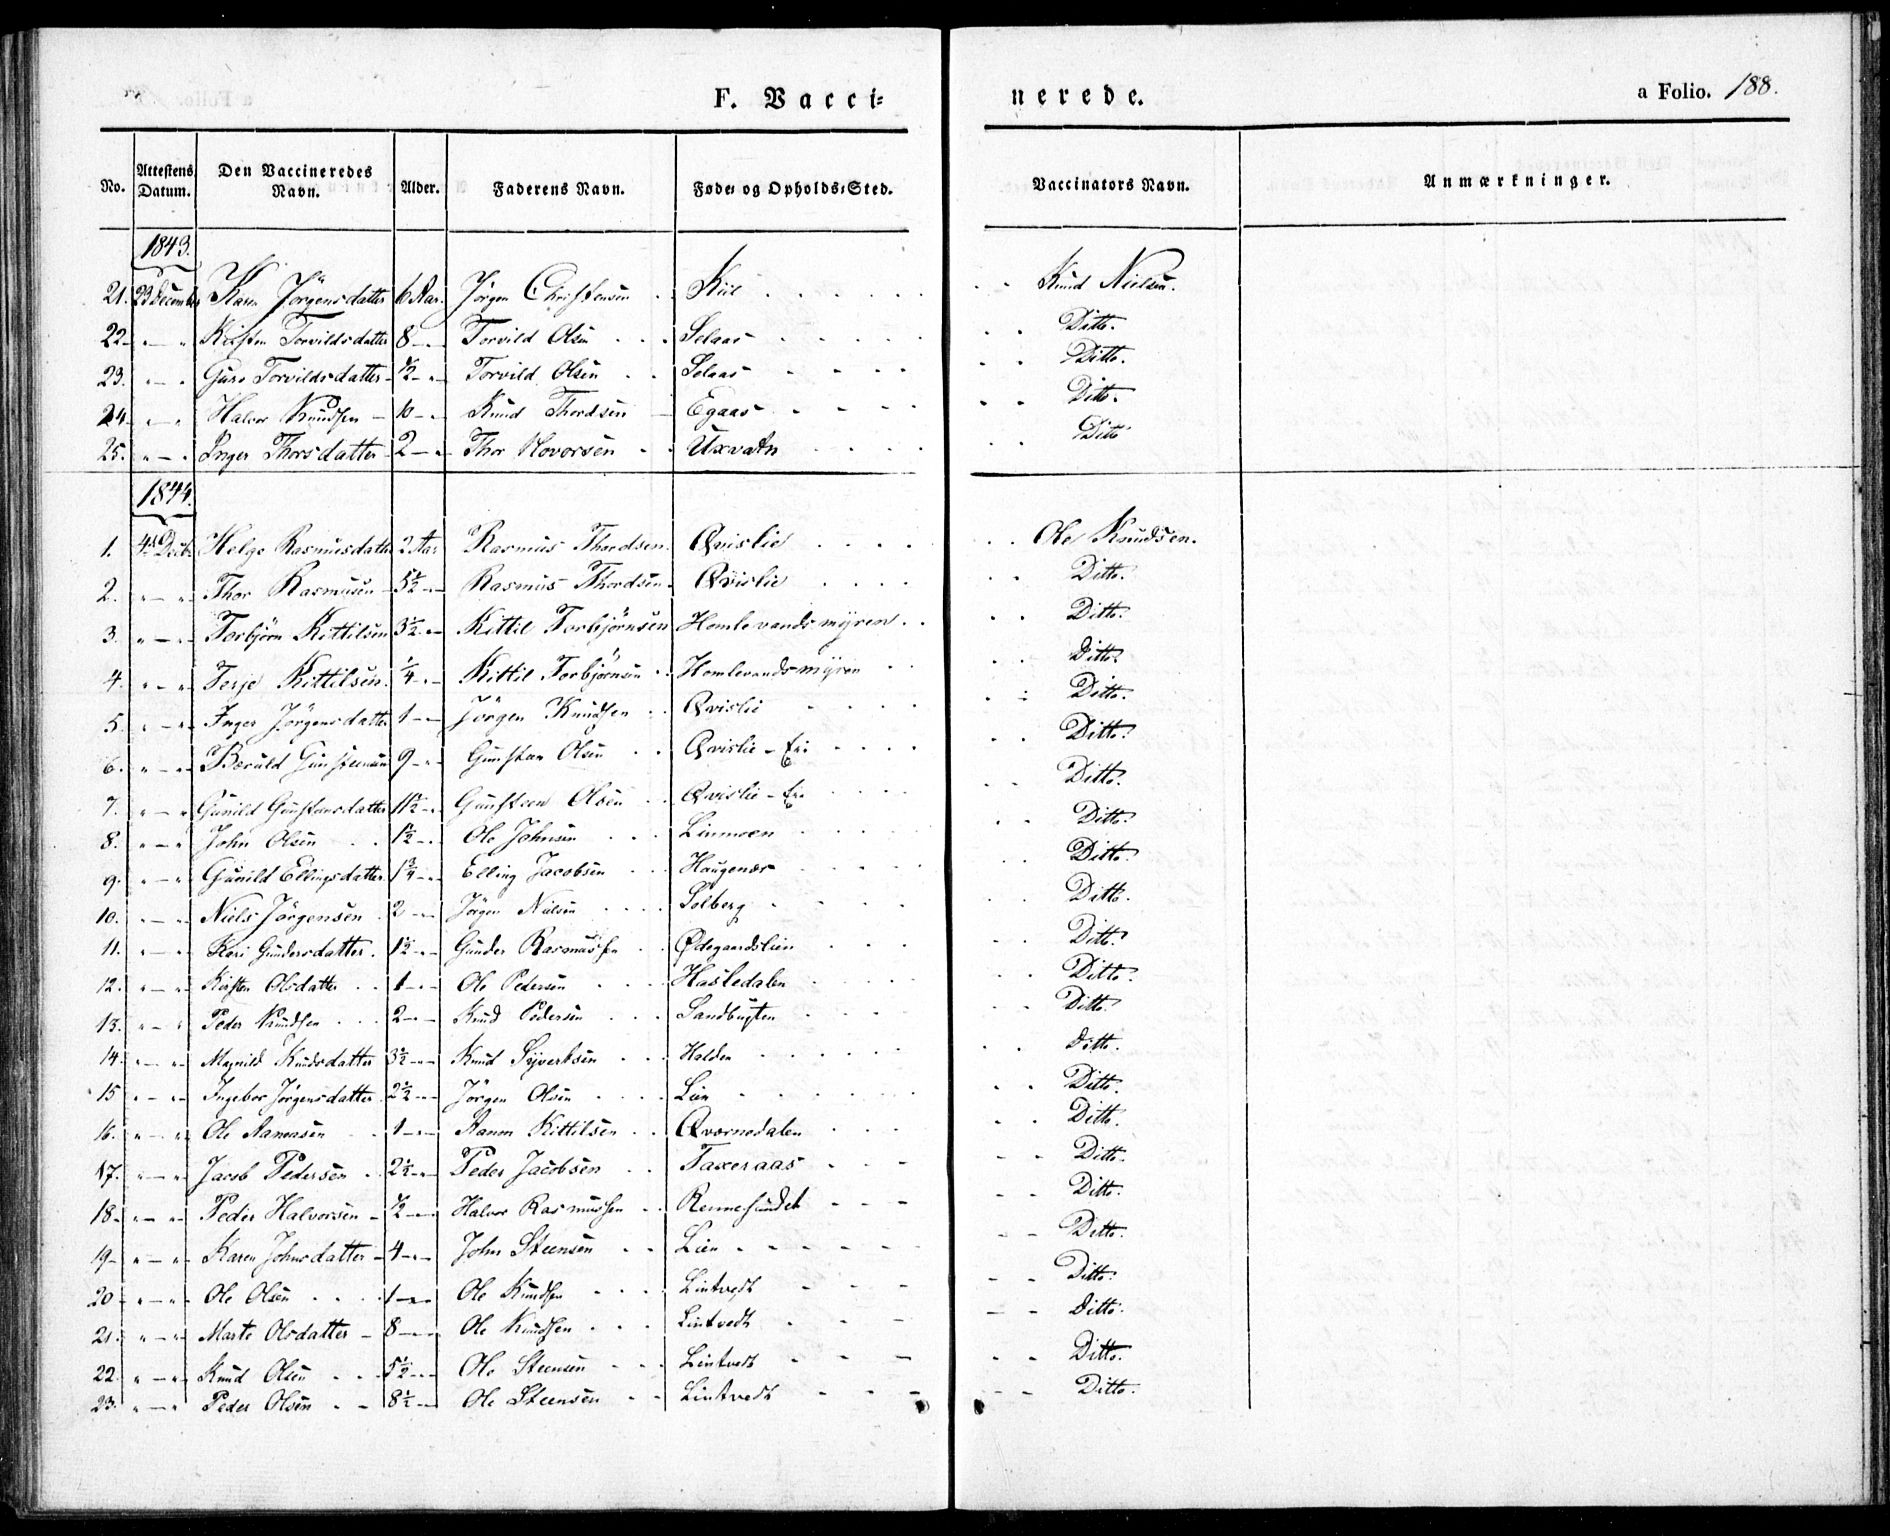 F. Vacci-
nerede.
a Folio. 188.
No. Attestens Datum. Den Vaccineredes Navn. Alder. Faderens Navn. Føde- og Opholds-Sted. Vaccinators Navn. Anmærkninger.
1843.
21. 23 December Karen Jörgensdatter 6 Aar. Jörgen Christensen Kiil Knud Nielsen.
22 - " - " Kirsten Torvildsdatter 8 - " Torvild Olsen Selaas Ditto.
23. " - " Guro Torvildsdatter 1/2 - " Torvild Olsen Selaas Ditto.
24 " - " Halvor Knudsen 10 - " Knud Thordsen Egaas Ditto.
25. " - " Inger Thorsdatter 2 - " Thor Hovorsen Uxvatn Ditto
1844.
1. 4de Decbr. Helge Rasmusdatter 2 Aar Rasmus Thordsen Qvislie Ole Knudsen.
2. " - " Thor Rasmusen 5 1/2 - " Rasmus Thordsen Qvislie Ditto.
3. " - " Torbjörn Kittilsen 3 1/2 - " Kittil Torbjörnsen Homlevandsmyren Ditto.
4. " - " Terje Kittilsen 1/4 - " Kittil Torbjörnsen Homlevandsmyren Ditto.
5. " - " Inger Jörgensdatter 1 - " Jörgen Knudsen Qvislie Ditto.
6. " - " Gunstensen 9 - " Gunsten Olsen Qvislie - Eie Ditto.
7. " - " Gunild Gunstensdatter 1 1/2 - " Gunsteen Olsen Qvislie - Eie Ditto.
8. " - " John Olsen 1 1/2 - " Ole Johnsen Linmoen Ditto.
9. " - " Gunild Ellingsdatter 1 3/4 - " Elling Jacobsen Haugenæs Ditto.
10. " - " Niels Jörgensen 2 - " Jörgen Nielsen Solberg Ditto.
11. " - " Kari Gundersdatter. 1 1/2 - " Gunder Rasmussen Ødegaardslien Ditto.
12. " - " Kirsten Olsdatter 1 - " Ole Pedersen Hasledalen Ditto.
13. " - " Peder Knudsen 2 - " Knud Pedersen Sandbugten Ditto.
14. " - " Magnild Knudsdatter 3 1/2 - " Knud Syvertsen Halden Ditto.
15 " - " Ingebor Jörgensdatter 2 1/2 - " Jörgen Olsen Lien Ditto.
16. " - " Ole Aanonsen 1 - " Aanon Kittilsen Qvernedalen Ditto.
17. " - " Jacob Pedersen 2 1/2 - " Peder Jacobsen Taxeraas Ditto.
18 - " - " Peder Halvorsen 1/2 - " Halvor Rasmussen Rennesundet Ditto.
19 - " - " Karen Johnsdatter 4 - " John Steensen Lien Ditto.
20 - " - " Ole Olsen 1 - " Ole Knudsen Lintvedt Ditto.
21. " - " Marte Olsdatter 8 - " Ole Knudsen Lintvedt Ditto.
22. " - " Knud Olsen 5 1/2 - " Ole Steensen Lintvedt Ditto.
23. " - " Peder Olsen 8 1/2 - " Ole Steensen Lintvedt Ditto.